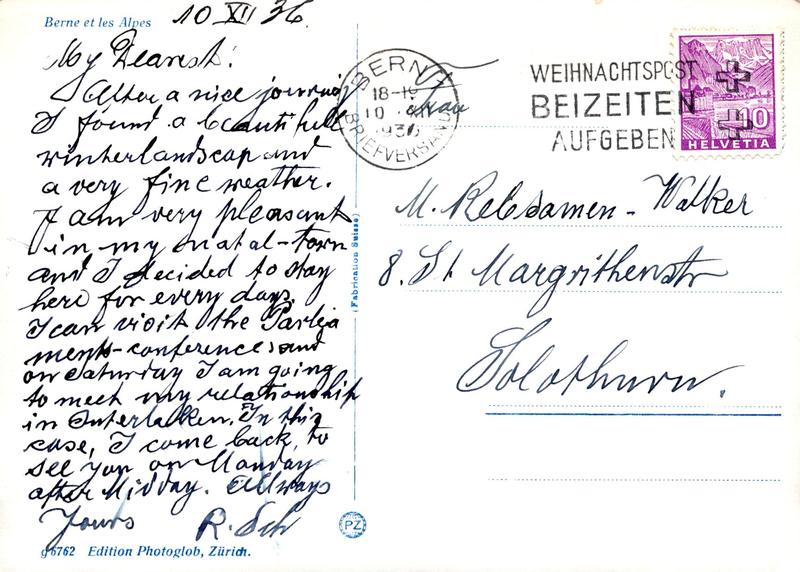 Berne et les Alpes
10 XII 36.
My Dearest!
After a nice journey
I found a beautifull
winterlandscap and
a very fine weather.
I am very pleasant
in my natal-town
and I decided to stay
here for every days.
I can visit the Parlja
ments-conferences and
on Saturday I am going
to meet my relationship
in Interlaken. In this
case, I come back, to
see you on Monday
after Midday. Allways
Yours R. Sch
g 6762 Edition Photoglob, Zürich.
(Fabrication Suisse)
PZ
BERN 1
18-19
10
1936
BRIEFVERSAND
WEIHNACHTSPOST
BEIZEITEN
AUFGEBEN
10
HELVETIA
M. Rebsamen-Walker
8. St Margrithenstr
Solothurn.